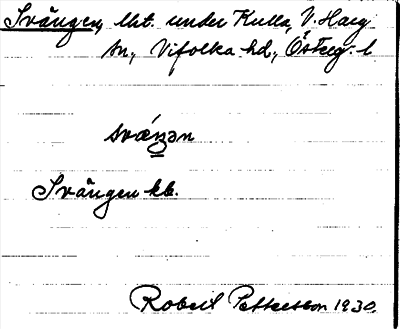 Svängen, lht. under Kulla, V. Harg
sn, Vifolka hd, Österg. l
svǽŋən
Svängen kb.
Robert Pettersson 1930.